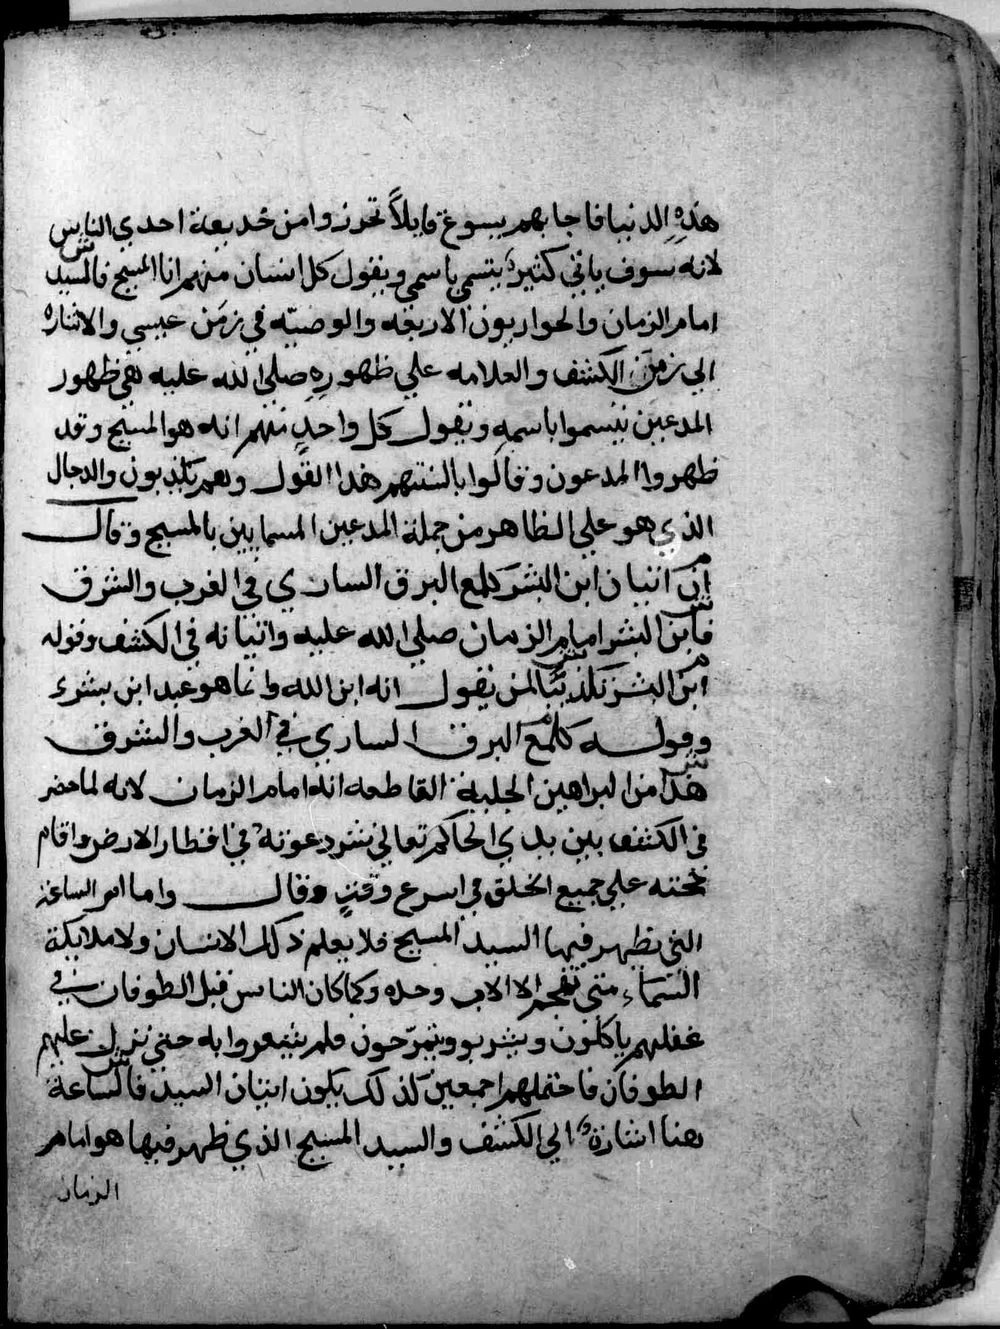 هذه الدنيا فاجابهم يسوع قايلاً تحرزوا من خديعة احدي الناس
لانه سوف ياتي كثير يتسمي باسمي ويقول كل انسان منهم انا المسيح فالسيد
امام الزمان والحواريون الاربعه والوصيه في زمن عيسي والاشاره
الي زمن الكشف والعلامه علي ظهوره صلي الله عليه هي ظهور
المدعين يتسموا باسمه ويقول كل واحد منهم انه هو المسيح وقد
ظهروا المدعون وقالوا بالسنتهم هذا القول وهم يكذبون والدجال
الذي هو علي الظاهر من جملة المدعين المسمايين بالمسيح وقال
ان اتيان ابن البشر كلمع البرق الساري في الغرب والشرق
ش
فابن البشر امام الزمان صلي الله عليه واتيانه في الكشف وقوله
ابن البشر تكذيبًا لمن يقول انه ابن الله وانما هو عبد ابن بشر
وقوله كلمع البرق الساري في الغرب والشرق
ش
هذا من البراهين الجلية القاطعه انه امام الزمان لانه لما حضر
في الكشف بين يدي الحاكم تعالي نشر دعوته في اقطار الارض واقام
حجته علي جميع الخلق في اسرع وقتٍ وقال واما امر الساعة
التي يظهر فيها السيد المسيح فلا يعلم ذلك الانسان ولا ملايكة
السماء متي تفجر الا الاب وحده وكما كان الناس قبل الطوفان في
غفلتهم ياكلون ويشربو ويتمرّحون فلم يشعروا به حتي نزل عليهم
الطوفان فاحتملهم اجمعين كذلك يكون اتيان السيد فالساعة
هنا اشارة الي الكشف والسيد المسيح الذي ظهر فيها هو امام
الزمان